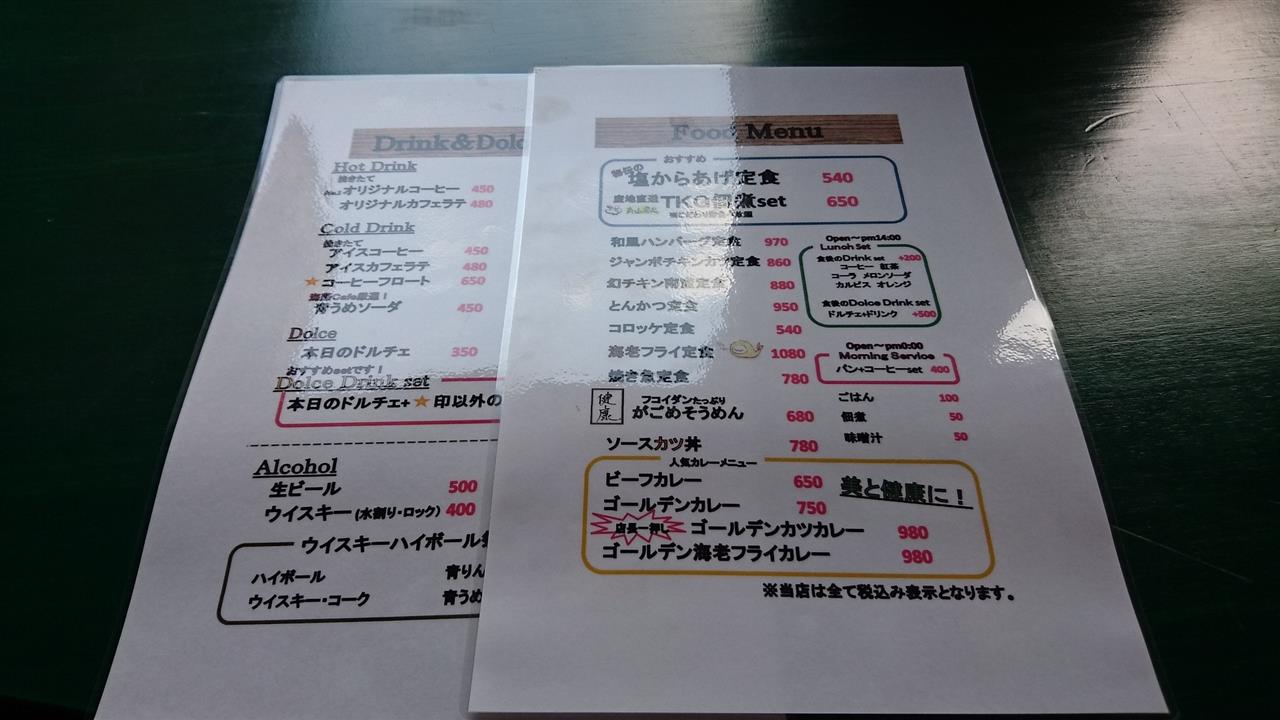 Drink&Dolc
Hot Drink
挽きたて
オリジナルコーヒー 450
オリジナルカフェラテ 480
Cold Drink
挽きたて
アイスコーヒー 450
アイスカフェラテ 480
★コーヒーフロート 650
Cafe厳選！
青うめソーダ 450
Dolce
本日のドルチェ 350
おすすめsetです！
Dolce Drink set
本日のドルチェ+★印以外の
Alcohol
生ビール 500
ウイスキー(水割り・ロック) 400
ウイスキーハイボール
ハイボール 青りん
ウイスキー・コーク 青うめ
Food Menu
おすすめ
塩からあげ定食 540
産地直送 TKG佃煮set 650
和風ハンバーグ定食 970
ジャンボチキンカツ定食 860
幻チキン南蛮定食 880
とんかつ定食 950
コロッケ定食 540
海老フライ定食 1080
焼き魚定食 780
健康
フコイダンたっぷり
がごめそうめん 680
ソースカツ丼 780
Open～pm14:00
Lunch Set
食後のDrink set +200
コーヒー 紅茶
コーラ メロンソーダ
カルピス オレンジ
食後のDolce Drink set
ドルチェ+ドリンク +500
Open～pm0:00
Morning Service
パン+コーヒーset 400
ごはん 100
佃煮 50
味噌汁 50
人気カレーメニュー
ビーフカレー 650
ゴールデンカレー 750
店長一押し ゴールデンカツカレー 980
ゴールデン海老フライカレー 980
美と健康に！
※当店は全て税込み表示となります。